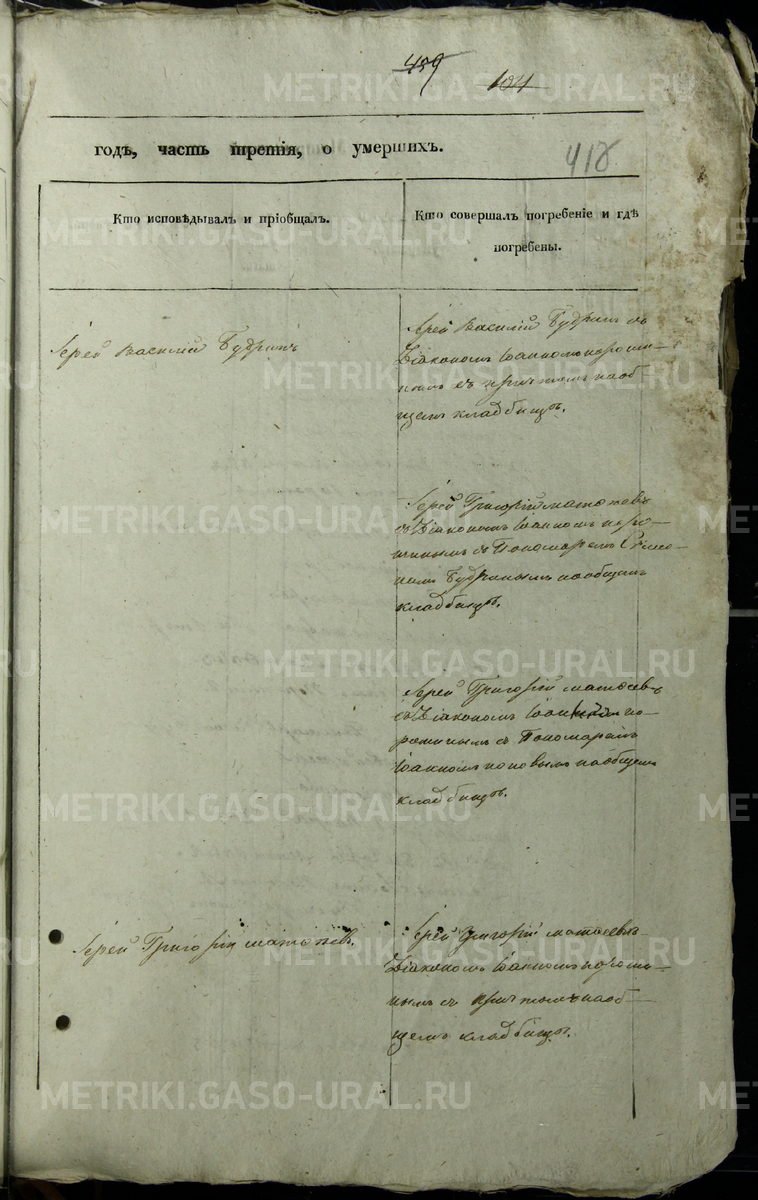 459
104
418
годъ, часть третія, о умершихъ.
Кто исповѣдывалъ и пріобщалъ.
Кто совершалъ погребеніе и гдѣ
погребены.
Іерей Василій Будринъ
Іерей Василій Будринъ съ
Діакономъ Іоанномъ пороши-
нымъ съ причтомъ на об-
щемъ кладбищѣ.
Іерей Григорій
съ Діакономъ Іоанномъ поро-
шинымъ съ Пономаремъ Симео-
номъ Будринымъ на общемъ
кладбищѣ.
Іерей Григорій
съ Діакономъ по-
рошинымъ съ Пономаремъ
Іоанномъ поповымъ на общемъ
кладбищѣ.
Іерей Григорій
Іерей Григорій
Діакономъ Іоанномъ пороши-
нымъ съ причтомъ на об-
щемъ кладбищѣ.
METRIKI.GASO-URAL.RU